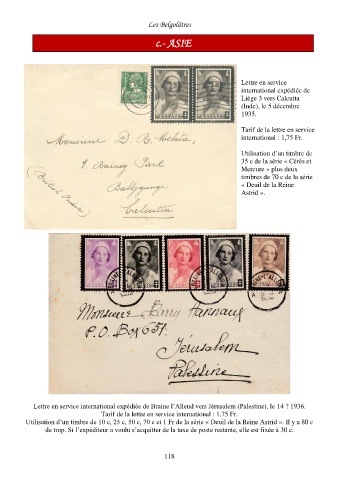 Les Belgolâtres
c.- ASIE
Lettre en service
international expédiée de
Liège 3 vers Calcutta
(Inde), le 5 décembre
1935.
Tarif de la lettre en service
international : 1,75 Fr.
Utilisation d'un timbre de
35 c de la série « Cérès et
Mercure » plus deux
timbres de 70 c de la série
« Deuil de la Reine
Astrid ».
Monsieur D. N. Mehta,
9. Rainey Park
Ballygunge
Calcutta
(British India)
BRAINE-L'ALLEUD
Monsieur Harry Hannaux
P.O. Box 651.
Jérusalem
Palestine
Lettre en service international expédiée de Braine l'Alleud vers Jérusalem (Palestine), le 14 ? 1936.
Tarif de la lettre en service international : 1,75 Fr.
Utilisation d'un timbre de 10 c, 25 c, 50 c, 70 c et 1 Fr de la série « Deuil de la Reine Astrid ». Il y a 80 c
de trop. Si l'expéditeur a voulu s'acquitter de la taxe de poste restante, elle est fixée à 30 c.
118